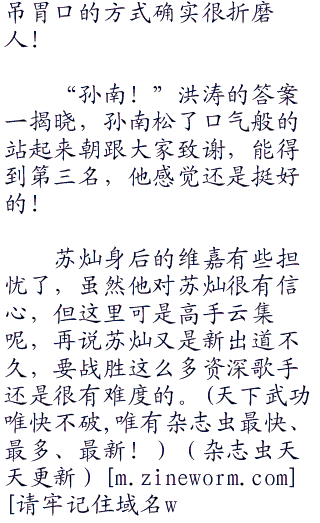 吊胃口的方式确实很折磨
人！
“孙南！”洪涛的答案
一揭晓，孙南松了口气般的
站起来朝跟大家致谢，能得
到第三名，他感觉还是挺好
的！
苏灿身后的维嘉有些担
忧了，虽然他对苏灿很有信
心，但这里可是高手云集
呢，再说苏灿又是新出道不
久，要战胜这么多资深歌手
还是很有难度的。(天下武功
唯快不破,唯有杂志虫最快、
最多、最新！）（杂志虫天
天更新）[m.zineworm.com]
[请牢记住域名w